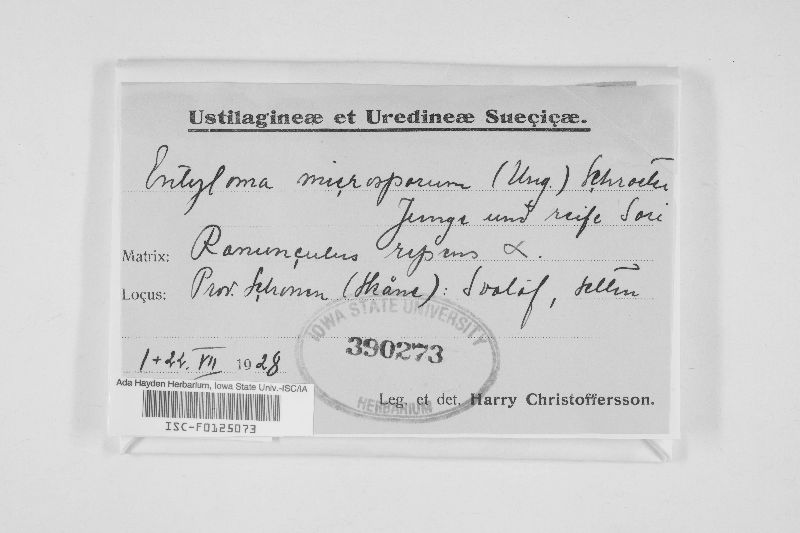 Ustilagineæ et Uredineæ Sueçiçæ.
Entyloma miçrosporum (Ung.) Sçhroeter
Junge und reife Sori
Matrix: Ranunçulus repens L.
Loçus: Prov. Sçhonen (Skåne): Svalöf, selten
1+22. VII 1928
IOWA STATE UNIVERSITY
390273
HERBARIUM
Leg. et det. Harry Christoffersson.
Ada Hayden Herbarium, Iowa State Univ.-ISC/IA
ISC-F0125073